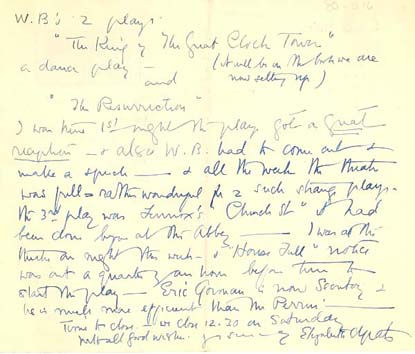 W.B's 2 plays.
"The King of The Great Clock Tower"
a dance play — (it will be in the book we are
and now setting up)
"The Resurrection"
I was there 1st night the plays got a great
reception — & also W.B. had to come out &
make a speech — & all the week the theatre
was full — rather wonderful for 2 such strange plays.
the 3rd play was Lennox's "Church St" it had
been done before at the Abbey — I was at the
theatre one night this week — & "House Full" notice
was out a quarter of an hour before time to
start the play — Eric Gorman is now Secretary &
he is much more efficient than Mr Perrin —
Time to close — we close 12.30 on Saturday
with all good wishes. yours sincerely Elizabeth C Yeats